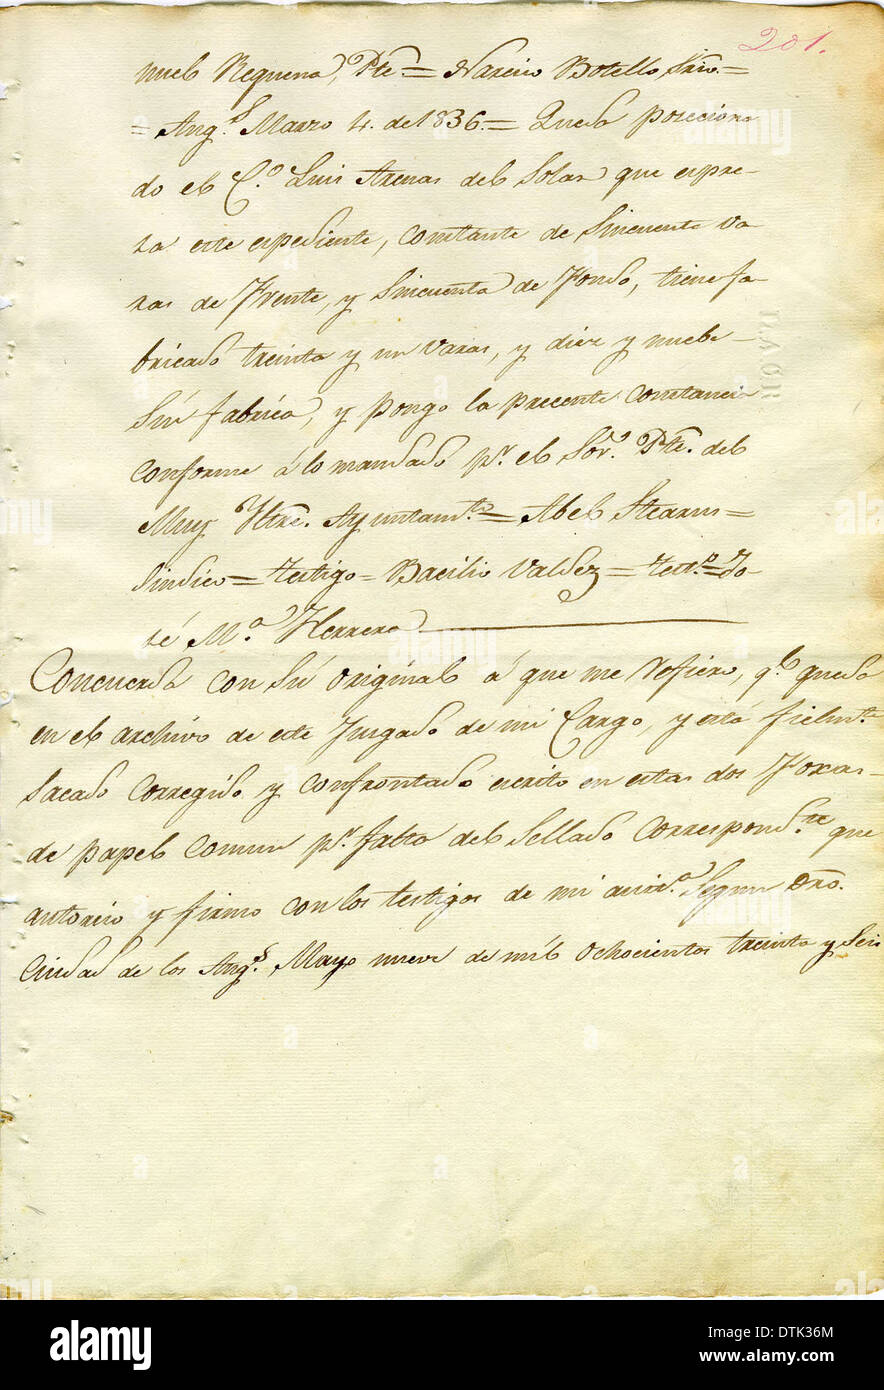 201.
nuel Requena, Pte.= Narciso Botello Srio.=
= Ang.s Marzo 4. de 1836.= Queda poseciona
do el C.o Luis Arenas del Solar que espre-
sa este espediente, constante de Sincuenta va
ras de Frente, y Sincuenta de Fondo, tiene fa
bricado treinta y un varas, y diez y nuebe
Sin fabrica, y pongo la precente constancia
conforme á lo mandado pr. el Sor. Pte. del
Muy Yltre. Ayuntamto.= Abel Stearns=
Sindico= testigo= Bacilio Valdez= testo.= Jo-
sé Ma. Herrera
Concuerda con Sú original á que me refiero, qe. queda
en el archivo de este Jusgado de mi Cargo, y está fielmte.
Sacado corregido y confrontado escrito en estas dos Foxas-
de papel comun pr. falta del Sellado correspondte. que
autoriso y firmo con los testigos de mi asista. Segun dro.
Ciudad de los Angs. Mayo nueve de mil ochocientos treinta y Seis
alamy
DTK36M
www.alamy.com